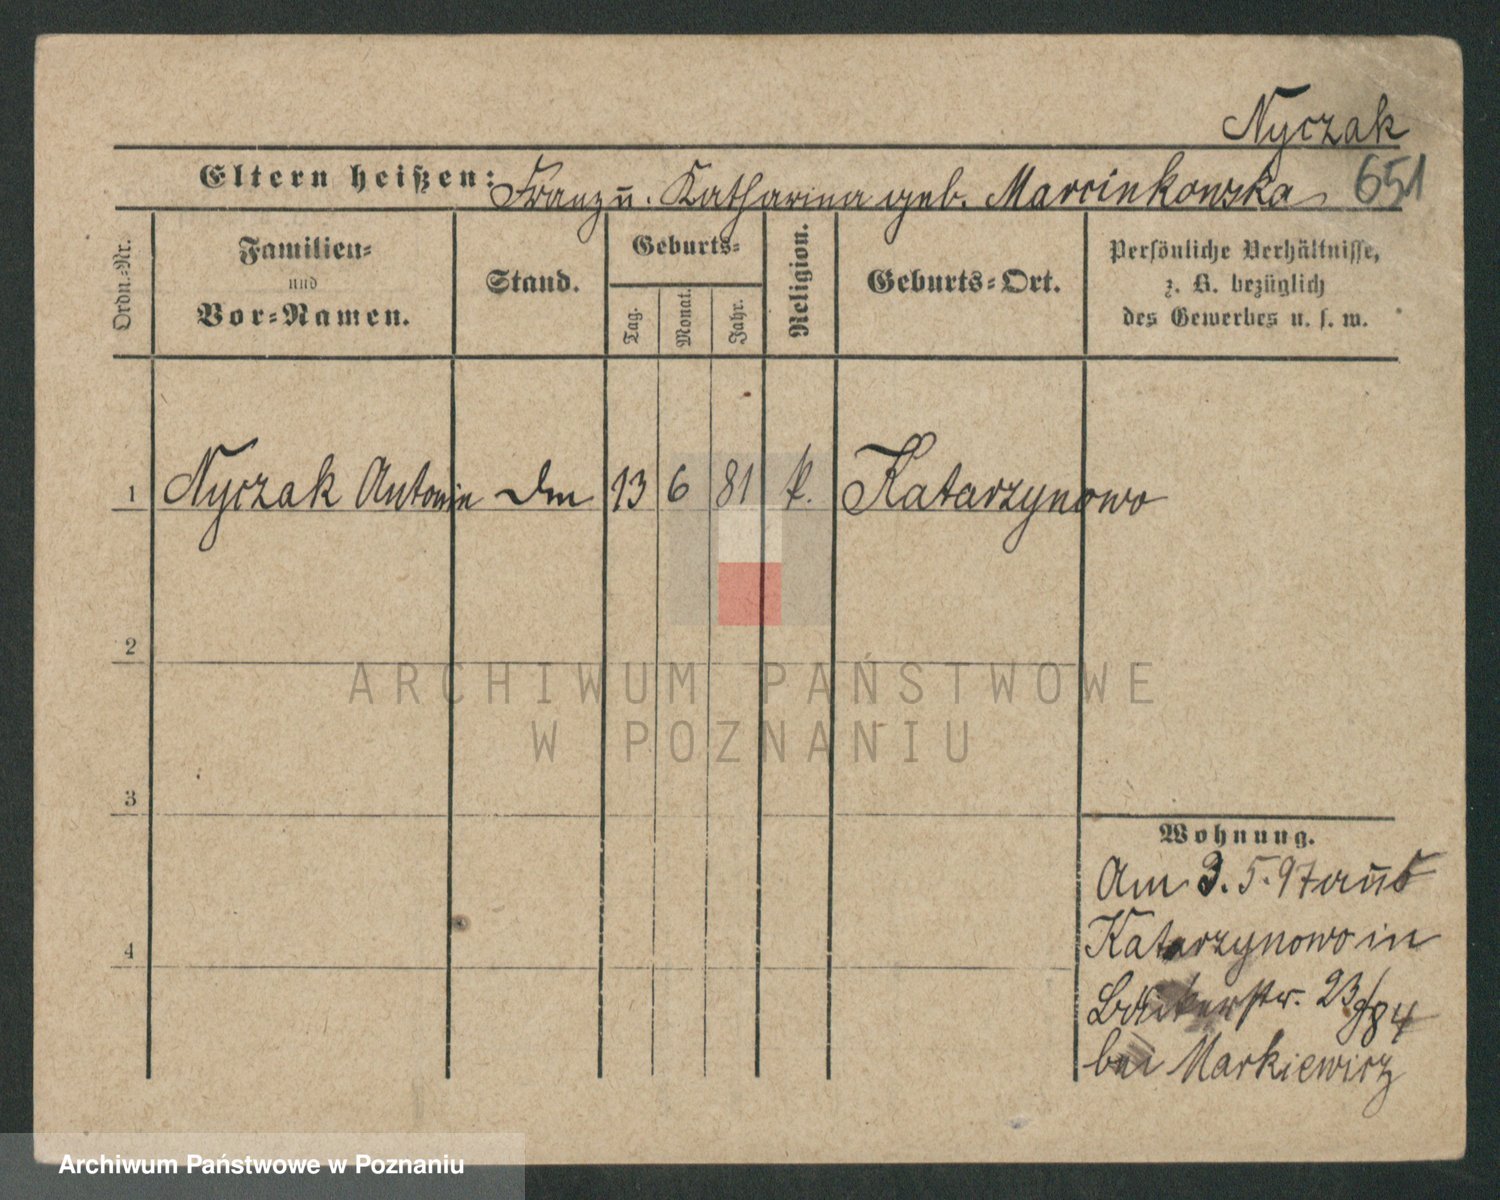 Nyczak
Eltern heißen: Franz u. Katharina geb. Marcinkowska 651
Ordn.-Nr.
Familien-
und
Vor-Namen.
Stand.
Geburts-
Tag.
Monat.
Jahr.
Religion.
Geburts-Ort.
Persönliche Verhältnisse,
z. B. bezüglich
des Gewerbes u. s. w.
1 Nyczak Antonin 13 6 81 k. Katarzynowo
2
3
4
Wohnung.
Am 3. 5. 97 aus
Katarzynowo in
Bäckerstr. 23/
bei Markiewicz
ARCHIWUM PAŃSTWOWE
W POZNANIU
Archiwum Państwowe w Poznaniu